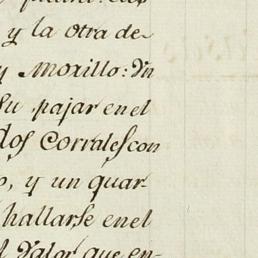 y la otra de-
y Morillo: Un
su pajar en el
dos corrales con
o, y un quar-
hallarse en el
valor que en-